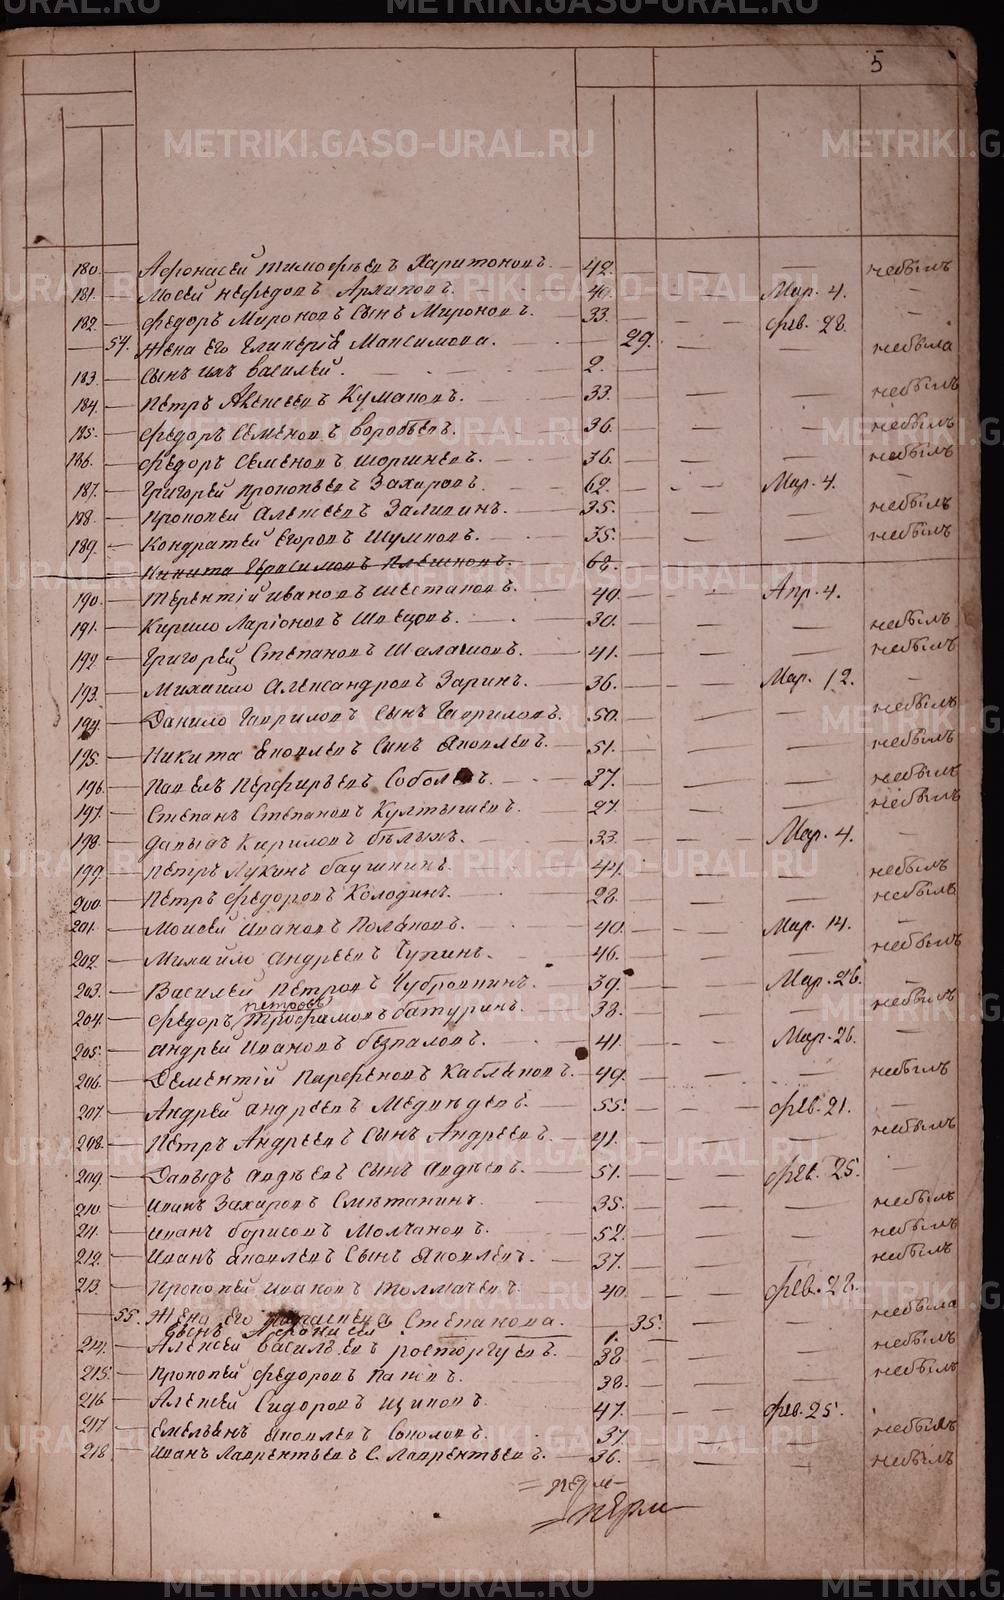 METRIKI.GASO-URAL.RU METRIKI.GASO-URAL.RU
5
180. Афонасей Тимофѣевъ Харитоновъ. 42. небылъ
181. Мосей Нефедовъ Архиповъ. 40. Мар. 4.
182. Федоръ Мироновъ сынъ Мироновъ. 33. Фев. 28.
54. Жена его Гликерія Максимова. 29. небыла
183. Сынъ ихъ Василей. 2.
184. Петръ Алексеевъ Кумановъ. 33. небылъ
185. Федоръ Семеновъ Воробьевъ. 36. небылъ
186. Федоръ Семеновъ Шоршневъ. 36. небылъ
187. Григорей Прокопьевъ Захаровъ. 62. Мар. 4.
188. Прокопей Алексеевъ Заликинъ. 35. небылъ
189. Кондратей Егоровъ Шумковъ. 35. небылъ
Никита Герасимовъ Плешковъ. 68.
190. Терентій Ивановъ Шестаковъ. 40. Апр. 4.
191. Кирило Ларіоновъ Швецовъ. 30. небылъ
192. Григорей Степановъ Шалашовъ. 41. небылъ
193. Михайло Александровъ Заринъ. 36. Мар. 12.
194. Данило Гавриловъ сынъ Гавриловъ. 50. небылъ
195. Никита Яковлевъ сынъ Яковлевъ. 51. небылъ
196. Павелъ Перфирьевъ Соболевъ. 37. небылъ
197. Степанъ Степановъ Култышевъ. 27. небылъ
198. Давыдъ Кириловъ Бѣлыхъ. 33. Мар. 4.
199. Петръ Лукинъ Баушкинъ. 44. небылъ
200. Петръ Федоровъ Колодинъ. 28. небылъ
201. Моисей Ивановъ Поляковъ. 40. Мар. 14.
202. Михайло Андреевъ Чупинъ. 46. небылъ
203. Василей Петровъ Чубровкинъ. 39. Мар. 26.
Петровъ
204. Федоръ Трофимовъ Батуринъ. 38. небылъ
205. Андрей Ивановъ Безпаловъ. 41. Мар. 26.
206. Дементій Парфеновъ Кабляковъ. 49. небылъ
207. Андрей Андреевъ Медведевъ. 55. Фев. 21.
208. Петръ Андреевъ сынъ Андреевъ. 41. небылъ
209. Давыдъ Авдѣевъ сынъ Авдѣевъ. 51. Фев. 25.
210. Иванъ Захаровъ Смѣтанинъ. 35. небылъ
211. Иванъ Борисовъ Молчановъ. 52. небылъ
212. Иванъ Яковлевъ сынъ Яковлевъ. 37. небылъ
213. Прокопей Ивановъ Толмачевъ. 40. Фев. 28.
55. Жена его Степанова. 35. небыла
Сынъ 1. небылъ
214. Алексей Васильевъ Росторгуевъ. 38 небылъ
215. Прокопей Федоровъ 38.
216 Алексей Сидоровъ Щиповъ. 47. Фев. 25.
217 Емельянъ Яковлевъ Соколовъ. 37. небылъ
218 Иванъ Лаврентьевъ С. Лаврентьевъ. 36. небылъ
METRIKI.GASO-URAL.RU METRIKI.GASO-URAL.RU